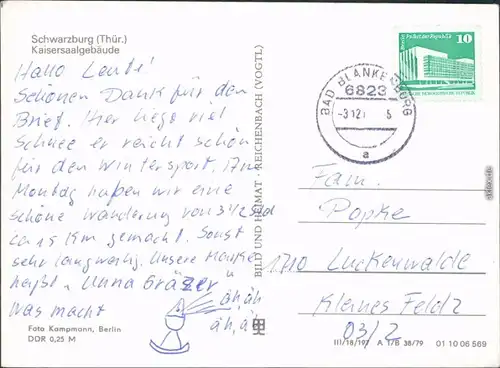 Schwarzburg (Thür.)
Kaisersaalgebäude
Hallo Leute!
Schönen Dank für den
Brief. Hier liegt viel
Schnee er reicht schön
für den Wintersport. Am
Montag haben wir eine
schöne Wanderung von 3 1/2 Std
ca 15 Km gemacht. Sonst
sehr langweilig. Unsere
heißt Anna Gräzer u
was macht
äh, äh
äh, äh
Foto Kampmann, Berlin
DDR 0,25 M
BILD UND HEIMAT · REICHENBACH (VOGTL)
10
BAD BLANKENBURG
6823
-3.12
5
a
Fam.
Popke
1710 Luckenwalde
Kleines Feld 2
03/2
III/18/197 A 1/B 38/79 01 10 06 569